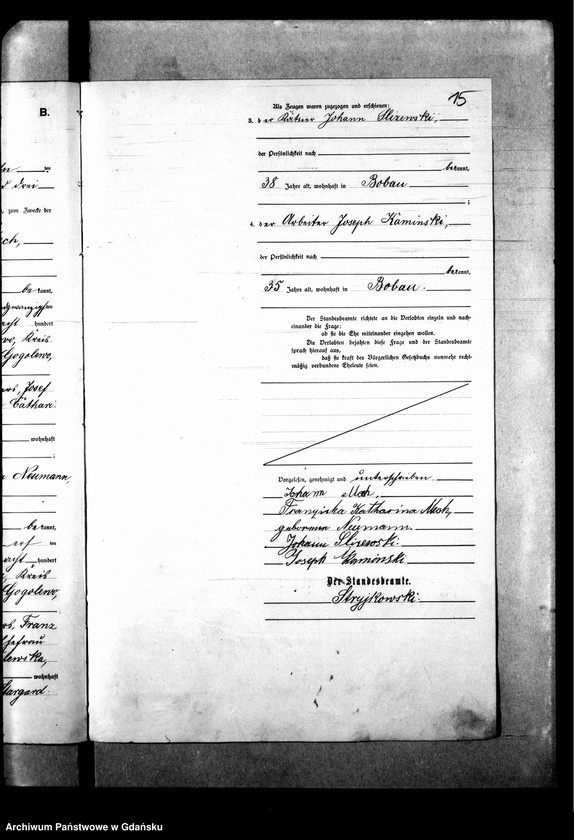 B.
drei
zum Zwecke der
be kannt,
hundert
Kreis
Gogolewo,
Josef
Cathari:
wohnhaft
;
Neumann,
be kannt,
hundert
Kreis
Gogolewo,
Franz
Ehefrau
wohnhaft
Stargard.
15
Als Zeugen waren zugezogen und erschienen:
3. d er Kätner Johann Slizewski,
der Persönlichkeit nach
be kannt,
38 Jahre alt, wohnhaft in Bobau
;
4. d er Arbeiter Joseph Kaminski,
der Persönlichkeit nach
be kannt,
35 Jahre alt, wohnhaft in Bobau.
Der Standesbeamte richtete an die Verlobten einzeln und nach-
einander die Frage:
ob sie die Ehe miteinander eingehen wollen.
Die Verlobten bejahten diese Frage und der Standesbeamte
sprach hierauf aus,
daß sie kraft des Bürgerlichen Gesetzbuchs nunmehr recht-
mäßig verbundene Eheleute seien.
Vorgelesen, genehmigt und unterschrieben.
Johann Mech.
Franziska Katharina Mech,
geborene Neumann.
Johann Slizewski.
Joseph Kaminski
Der Standesbeamte.
Stryjkowski.
Archiwum Państwowe w Gdańsku